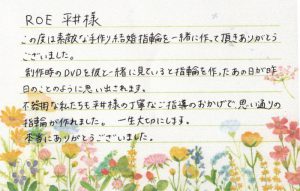 ROE 平井様
この度は素敵な手作り結婚指輪を一緒に作って頂きありがとう
ございました。
制作時のDVDを彼と一緒に見ていると指輪を作ったあの日が昨
日のことのように思い出されます。
不器用な私たちも平井様の丁寧なご指導のおかげで思い通りの
指輪が作れました。一生大切にします。
本当にありがとうございました。